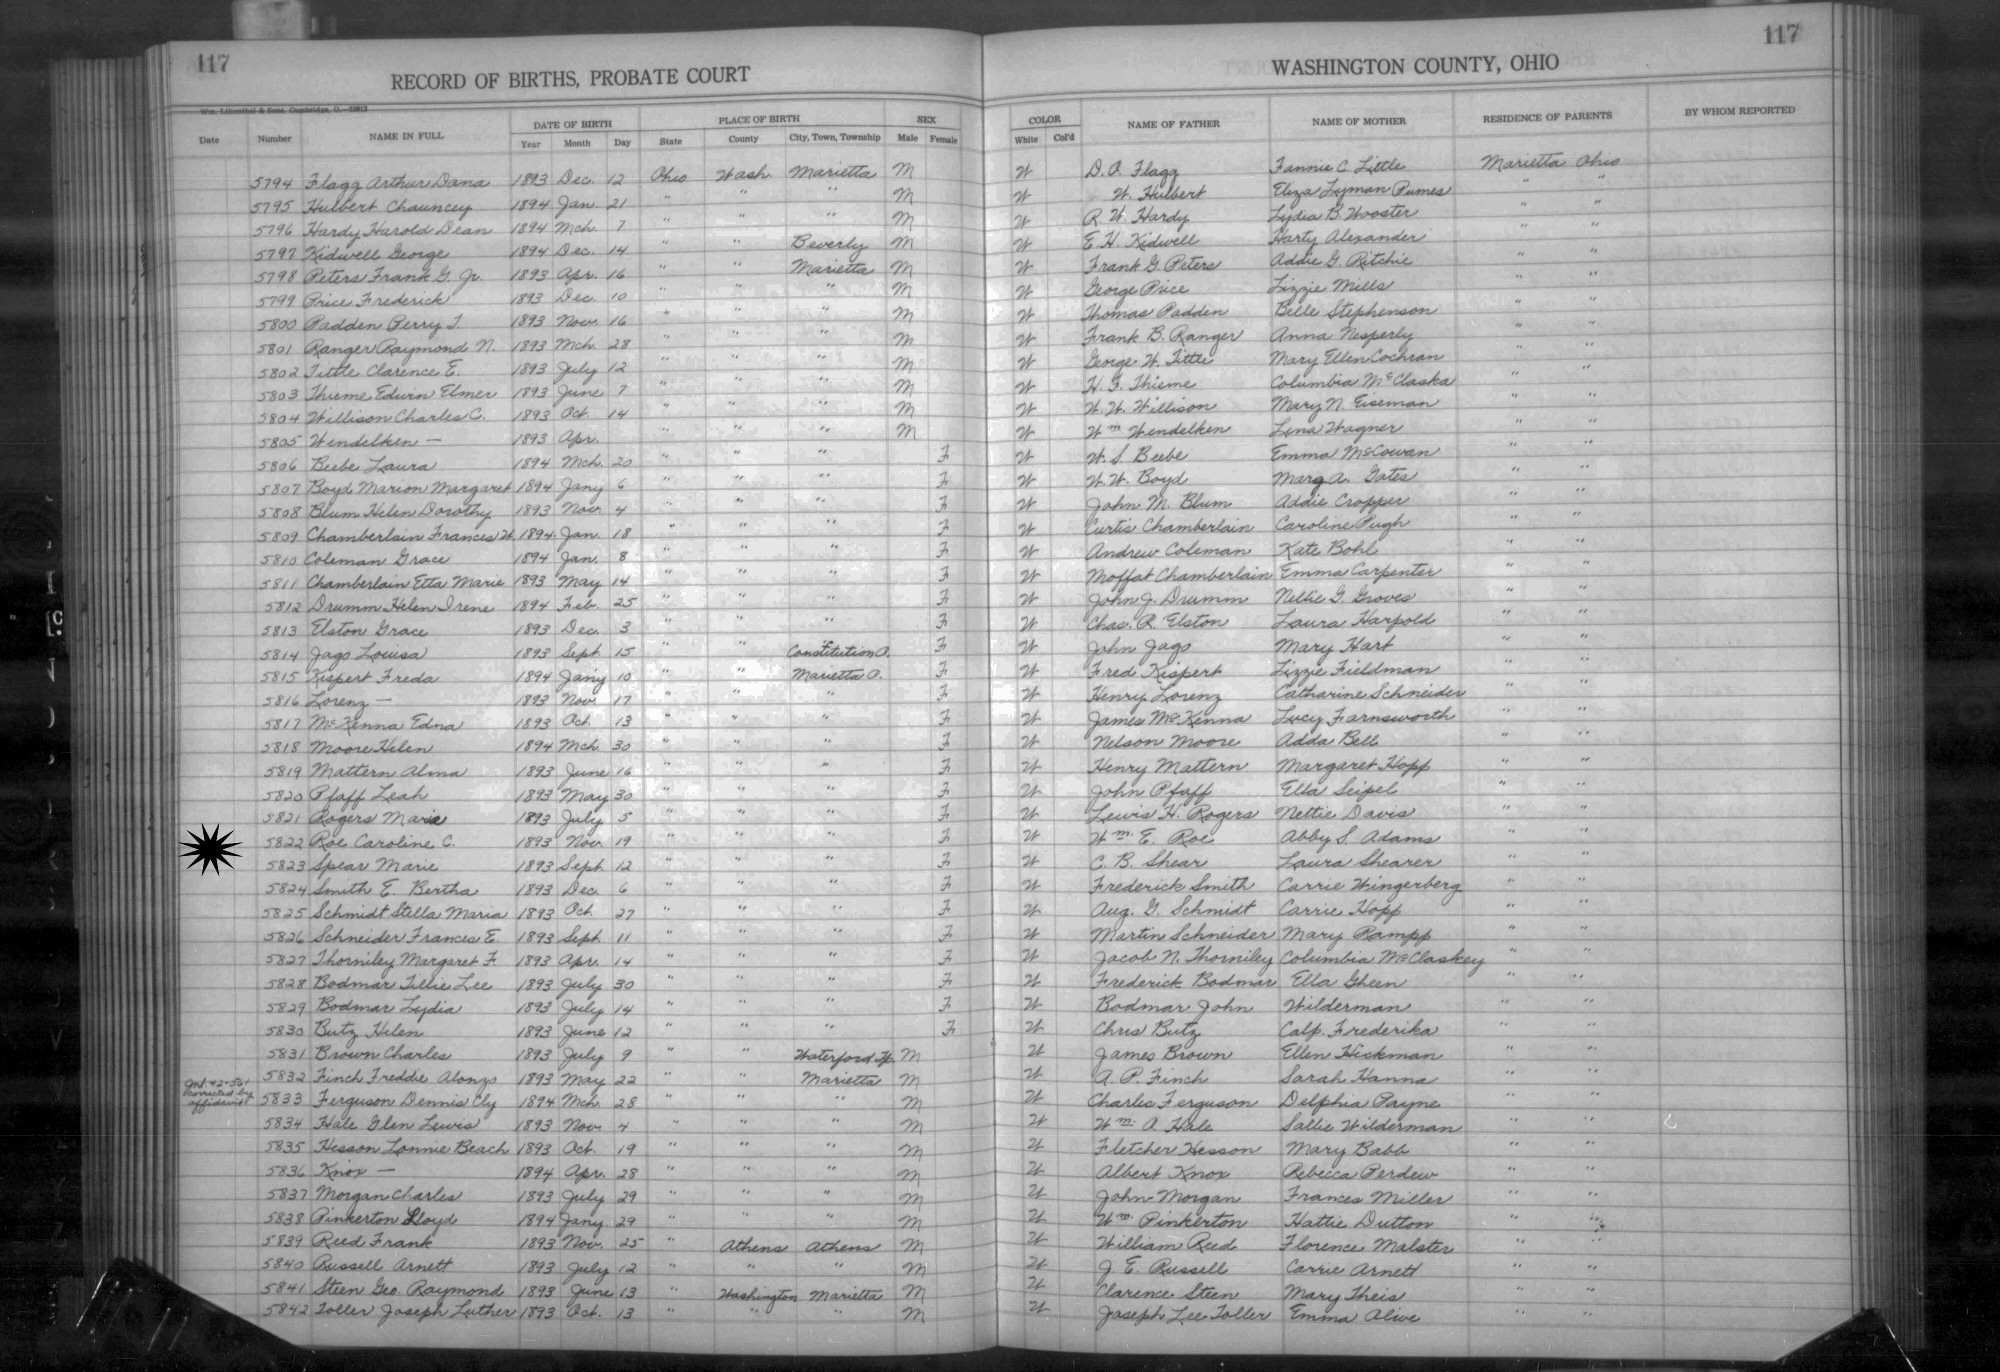 117
117
RECORD OF BIRTHS, PROBATE COURT
WASHINGTON COUNTY, OHIO
Wm. Lilienthal & Sons, Cambridge, O.
Date Number NAME IN FULL DATE OF BIRTH Year Month Day PLACE OF BIRTH State County City, Town, Township SEX Male Female COLOR White Col'd NAME OF FATHER NAME OF MOTHER RESIDENCE OF PARENTS BY WHOM REPORTED
5794 Flagg Arthur Dana 1893 Dec. 12 Ohio Wash. Marietta M W D. O. Flagg Fannie C. Little Marietta Ohio
5795 Hulbert Chauncey 1894 Jan. 21 " " " M W W. Hulbert Eliza Lyman Pumes " "
5796 Hardy Harold Dean 1894 Mch. 7 " " " M W R. W. Hardy Lydia B. Wooster " "
5797 Kidwell George 1894 Dec. 14 " " Beverly M W E. H. Kidwell Harty Alexander " "
5798 Peters Frank G. Jr. 1893 Apr. 16 " " Marietta M W Frank G. Peters Addie G. Ritchie " "
5799 Price Frederick 1893 Dec. 10 " " " M W George Price Lizzie Mills " "
5800 Padden Perry T. 1893 Nov. 16 " " " M W Thomas Padden Belle Stephenson " "
5801 Ranger Raymond N. 1893 Mch. 28 " " " M W Frank B. Ranger Anna Nesperly " "
5802 Tittle Clarence E. 1893 July 12 " " " M W George W. Tittle Mary Ellen Cochran " "
5803 Thieme Edwin Elmer 1893 June 7 " " " M W H. F. Thieme Columbia McClaska " "
5804 Willison Charles C. 1893 Oct. 14 " " " M W W. W. Willison Mary N. Eiseman " "
5805 Wendelken — 1893 Apr. " " " M W Wm Wendelken Lena Wagner " "
5806 Beebe Laura 1894 Mch. 20 " " " F W W. S. Beebe Emma McCowan " "
5807 Boyd Marion Margaret 1894 Jany 6 " " " F W W. W. Boyd Marg A. Gates " "
5808 Blum Helen Dorothy 1893 Nov. 4 " " " F W John M. Blum Addie Cropper " "
5809 Chamberlain Frances W. 1894 Jan. 18 " " " F W Curtis Chamberlain Caroline Pugh " "
5810 Coleman Grace 1894 Jan. 8 " " " F W Andrew Coleman Kate Bohl " "
5811 Chamberlain Etta Marie 1893 May 14 " " " F W Moffat Chamberlain Emma Carpenter " "
5812 Drumm Helen Irene 1894 Feb. 25 " " " F W John J. Drumm Nellie G. Groves " "
5813 Elston Grace 1893 Dec. 3 " " " F W Chas. R. Elston Laura Harpold " "
5814 Jago Louisa 1893 Sept 15 " " Constitution O. F W John Jago Mary Hart " "
5815 Kispert Freda 1894 Jany 10 " " Marietta O. F W Fred Kispert Lizzie Fieldman " "
5816 Lorenz — 1893 Nov. 17 " " " F W Henry Lorenz Catharine Schneider " "
5817 McKenna Edna 1893 Oct. 13 " " " F W James McKenna Lucy Farnsworth " "
5818 Moore Helen 1894 Mch. 30 " " " F W Nelson Moore Adda Bell " "
5819 Mattern Alma 1893 June 16 " " " F W Henry Mattern Margaret Hopp " "
5820 Pfaff Leah 1893 May 30 " " " F W John Pfaff Ella Seipel " "
5821 Rogers Marie 1893 July 5 " " " F W Lewis H. Rogers Nettie Davis " "
5822 Roe Caroline C. 1893 Nov. 19 " " " F W Wm. E. Roe Abby S. Adams " "
5823 Spear Marie 1893 Sept. 12 " " " F W C. B. Shear Laura Shearer " "
5824 Smith E. Bertha 1893 Dec. 6 " " " F W Frederick Smith Carrie Wingerberg " "
5825 Schmidt Stella Maria 1893 Oct. 27 " " " F W Aug. G. Schmidt Carrie Hopp " "
5826 Schneider Frances E. 1893 Sept. 11 " " " F W Martin Schneider Mary Rampp " "
5827 Thorniley Margaret F. 1893 Apr. 14 " " " F W Jacob N. Thorniley Columbia McClaskey " "
5828 Bodmar Tillie Lee 1893 July 30 " " " F W Frederick Bodmar Ella Gheen " "
5829 Bodmar Lydia 1893 July 14 " " " F W Bodmar John Wilderman " "
5830 Butz Helen 1893 June 12 " " " F W Chris Butz Calp. Frederika " "
5831 Brown Charles 1893 July 9 " " Waterford Tp. M W James Brown Ellen Hickman " "
5832 Finch Freddie Alonzo 1893 May 22 " " Marietta M W A. P. Finch Sarah Hanna " "
corrected by affidavit 5833 Ferguson Dennis Ely 1894 Mch. 28 " " " M W Charles Ferguson Delphia Payne " "
5834 Hale Glen Lewis 1893 Nov. 4 " " " M W Wm. A. Hale Sallie Wilderman " "
5835 Hesson Lonnie Beach 1893 Oct. 19 " " " M W Fletcher Hesson Mary Babb " "
5836 Knox — 1894 Apr. 28 " " " M W Albert Knox Rebecca Perdew " "
5837 Morgan Charles 1893 July 29 " " " M W John Morgan Frances Miller " "
5838 Pinkerton Lloyd 1894 Jany. 29 " " " M W Wm. Pinkerton Hattie Dutton " "
5839 Reed Frank 1893 Nov. 25 " Athens Athens M W William Reed Florence Malster " "
5840 Russell Arnett 1893 July 12 " " " M W J. E. Russell Carrie Arnett " "
5841 Steen Geo. Raymond 1893 June 13 " Washington Marietta M W Clarence Steen Mary Theis " "
5842 Toller Joseph Luther 1893 Oct. 13 " " " M W Joseph Lee Toller Emma Alwe " "